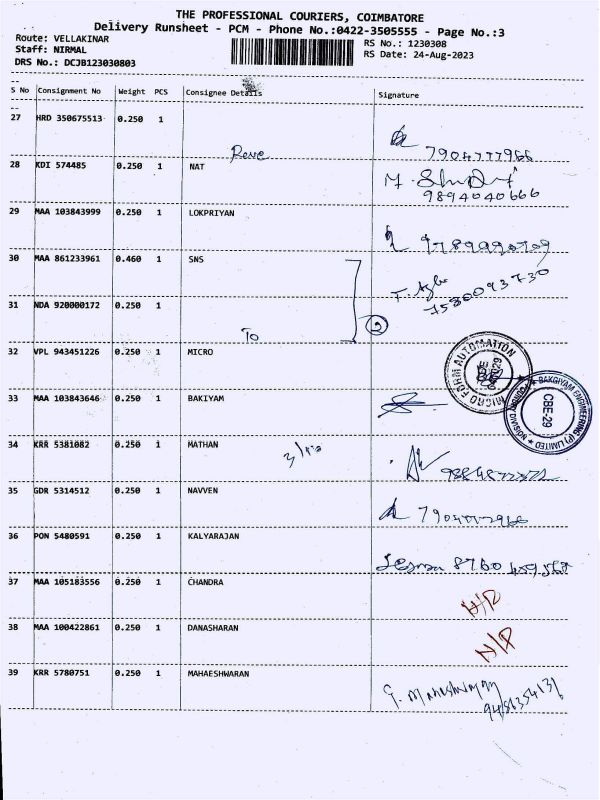 THE PROFESSIONAL COURIERS, COIMBATORE
Delivery Runsheet - PCM - Phone No.:0422-3505555 - Page No.:3
Route: VELLAKINAR
RS No.: 1230308
Staff: NIRMAL
RS Date: 24-Aug-2023
DRS No.: DCJB123030803
S No Consignment No Weight PCS Consignee Details Signature
27 HRD 350675513 0.250 1
7904777966
28 KDI 574485 0.250 1 NAT
9894040666
29 MAA 103843999 0.250 1 LOKPRIYAN
30 MAA 861233961 0.460 1 SNS
7530093730
31 NDA 920000172 0.250 1
To
2
32 VPL 943451226 0.250 1 MICRO
MICRO FORM AUTOMATION
33 MAA 103843646 0.250 1 BAKIYAM
BAKGIYAM ENGINEERING (P) LIMITED
FOUNDRY DIVISION
CBE-29
34 KRR 5381082 0.250 1 MATHAN
35 GDR 5314512 0.250 1 NAVVEN
36 PON 5480591 0.250 1 KALYARAJAN
37 MAA 105183556 0.250 1 CHANDRA
38 MAA 100422861 0.250 1 DANASHARAN
N/P
39 KRR 5780751 0.250 1 MAHAESHWARAN